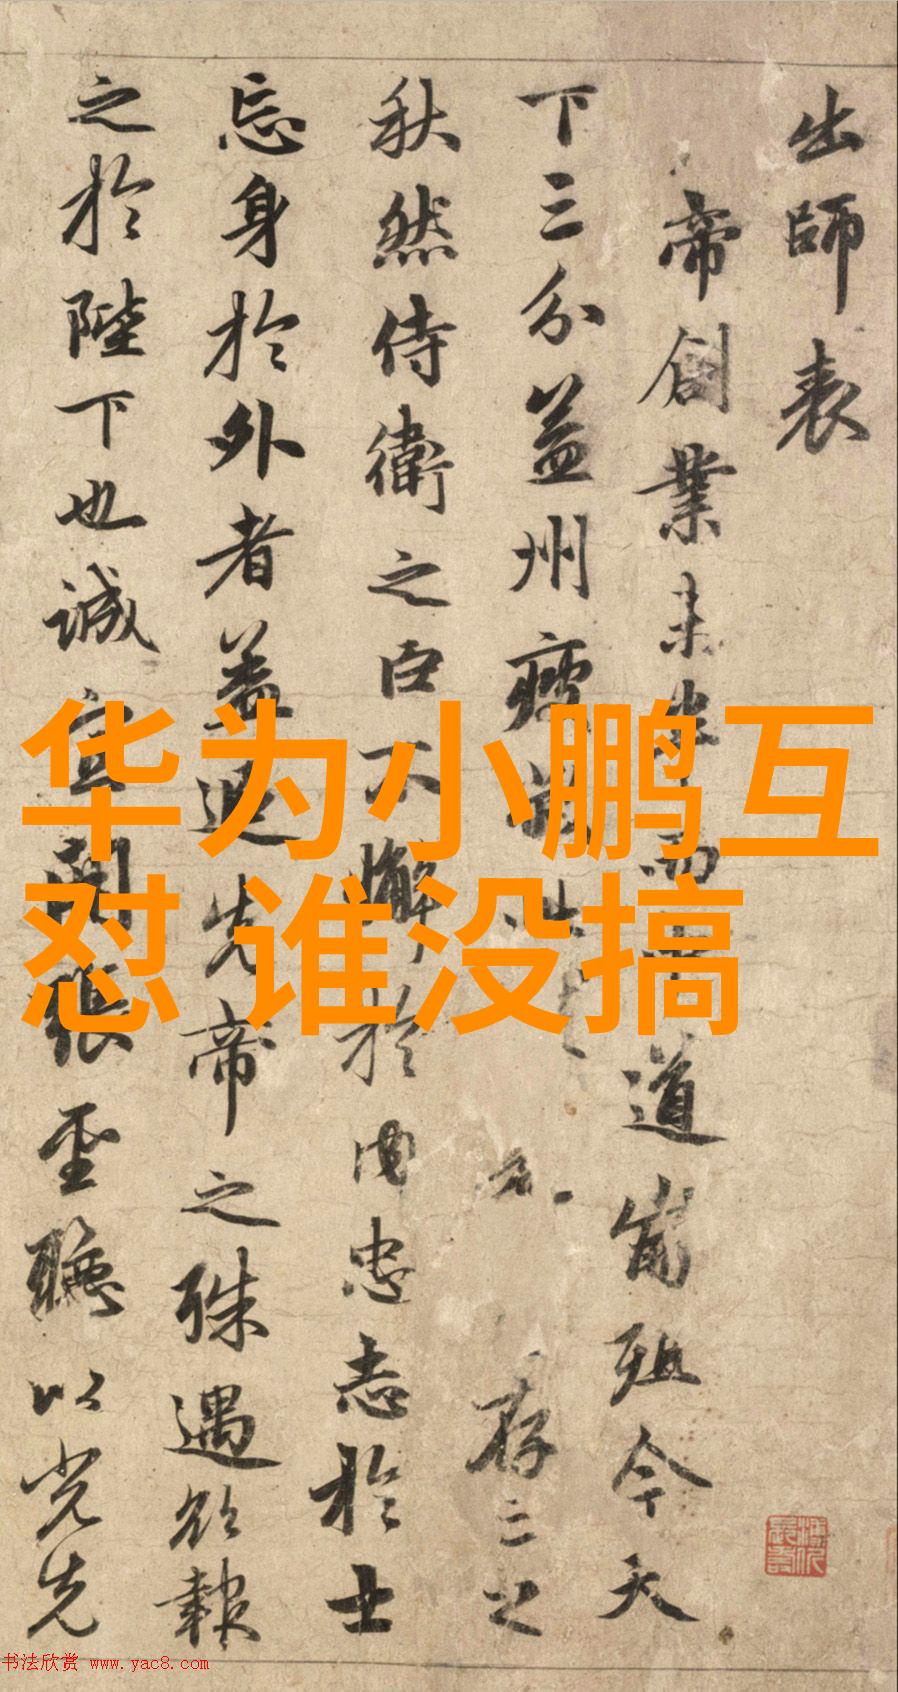 出師表
帝創業未半而中道崩殂今天
下三分益州疲弊此存亡之
秋然侍衛之臣不懈於内忠志於士
忘身於外者蓋追先帝之殊遇欲報
之於陛下也誠宜開張聖聽以光先
华为小鹏互
怼 谁没搞
书法欣赏 www.yac8.com